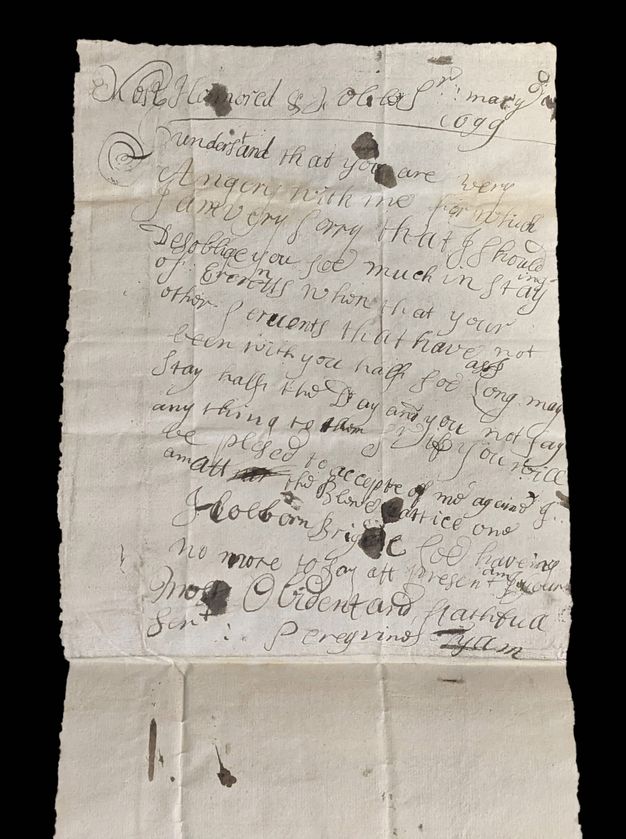 Most Honored & Nobled Sr: may ye
1699
I understand that you are very
Angery with me for which
I am very sorry that I should
Desoblige you soe much in staying
of Erents when that your
other Servents that have not
been with you half soe long may
stay half the Day and you not say
any thing to them Sr if you will
be plesed to accepte of me againe I
am att the Blewe Lattice one
Holborn Brigde soe haveing
no more to say att present
most Obident and faithfull
Sert: Peregrine